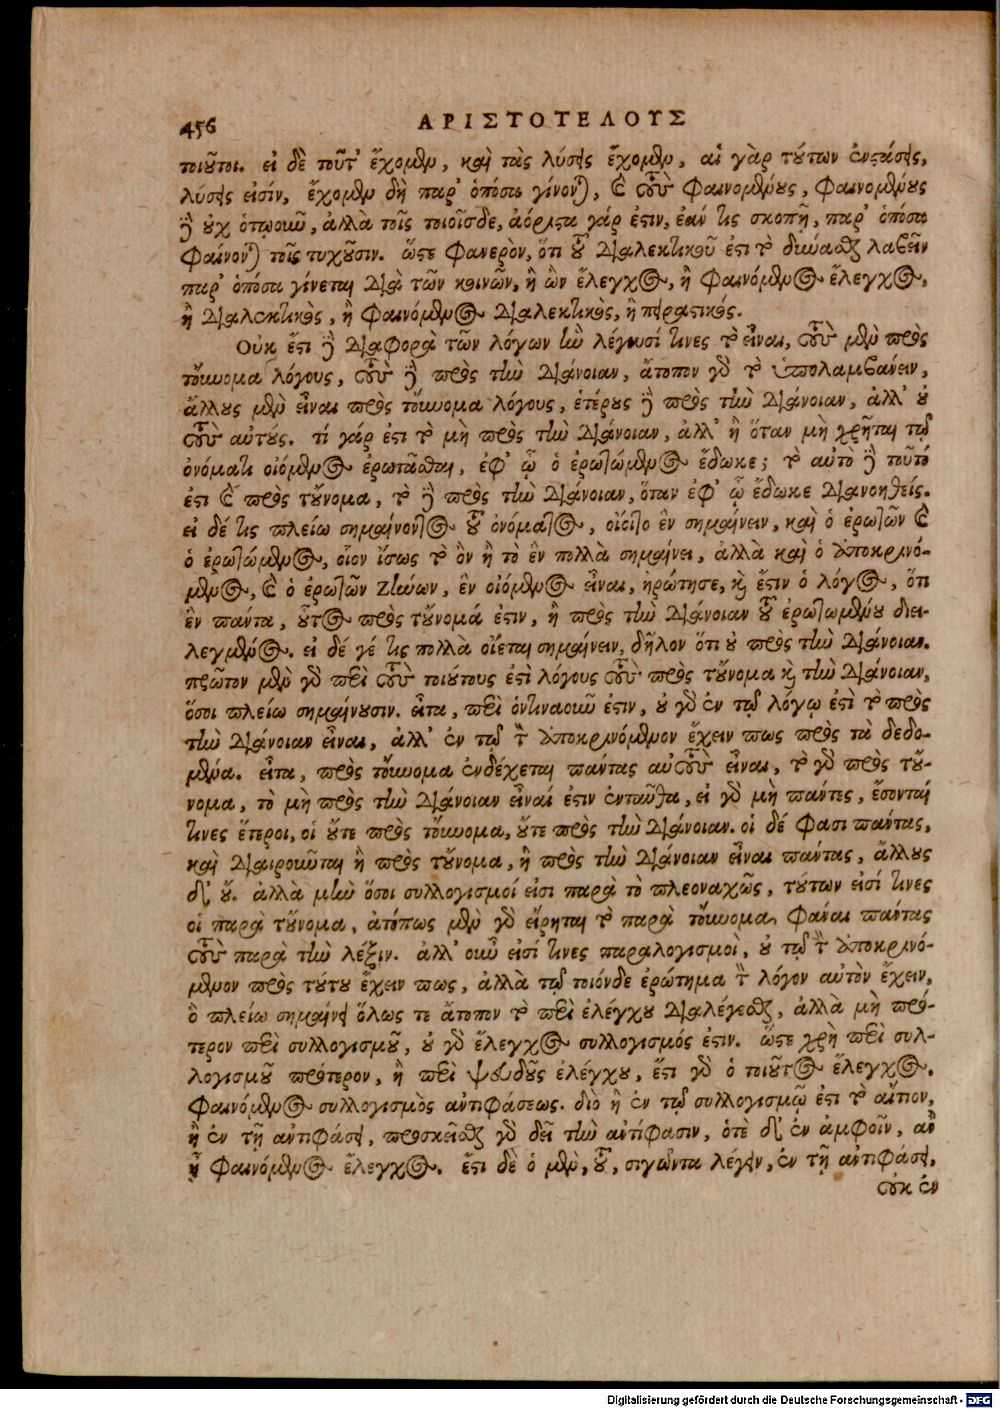 456 ΑΡΙΣΤΟΤΕΛΟΥΣ
τοιοῦτοι. εἰ δὲ τοῦτ' ἔχομεν, καὶ τὰς λύσεις ἔχομεν, αἱ γὰρ τούτων ἐνστάσεις,
λύσεις εἰσίν, ἔχομεν δὴ παρ' ὁπόσα γίνονται, καὶ τοὺς φαινομένους, φαινομένους
δὲ οὐχ ὁτῳοιῦ, ἀλλὰ τοῖς τοιοῖσδε, ἀόριστα γάρ ἐστιν, ἐάν τις σκοπῇ, παρ' ὁπόσα
φαίνονται τοῖς τυχοῦσιν. ὥστε φανερὸν, ὅτι τοῦ διαλεκτικοῦ ἐστι τὸ δύνασθαι λαβεῖν
παρ' ὁπόσα γίνεται διὰ τῶν κοινῶν, ἢ ὢν ἔλεγχος, ἢ φαινόμενος ἔλεγχος,
ἢ διαλεκτικὸς, ἢ φαινόμενος διαλεκτικὸς, ἢ πειραστικός.
Οὐκ ἔστι δὲ διαφορὰ τῶν λόγων ἣν λέγουσί τινες τὸ εἶναι, τοὺς μὲν πρὸς
τοὔνομα λόγους, τοὺς δὲ πρὸς τὴν διάνοιαν, ἄτοπον γὰρ τὸ ὑπολαμβάνειν,
ἄλλους μὲν εἶναι πρὸς τοὔνομα λόγους, ἑτέρους δὲ πρὸς τὴν διάνοιαν, ἀλλ' οὐ
τοὺς αὐτούς. τί γάρ ἐστι τὸ μὴ πρὸς τὴν διάνοιαν, ἀλλ' ἢ ὅταν μὴ χρῆται τῷ
ὀνόματι οἰόμενος ἐρωτᾶσθαι, ἐφ' ᾧ ὁ ἐρωτώμενος ἔδωκε; τὸ αὐτὸ δὲ τοῦτό
ἐστι καὶ πρὸς τοὔνομα, τὸ δὲ πρὸς τὴν διάνοιαν, ὅταν ἐφ' ᾧ ἔδωκε διανοηθείς.
εἰ δέ τις πλείω σημαίνοντος τοῦ ὀνόματος, οἴοιτο ἓν σημαίνειν, καὶ ὁ ἐρωτῶν καὶ
ὁ ἐρωτώμενος, οἷον ἴσως τὸ ὂν ἢ τὸ ἓν πολλὰ σημαίνει, ἀλλὰ καὶ ὁ ἀποκρινό-
μενος, καὶ ὁ ἐρωτῶν Ζήνων, ἓν οἰόμενος εἶναι, ἠρώτησε, καὶ ἔστιν ὁ λόγος, ὅτι
ἓν πάντα, οὗτος πρὸς τοὔνομά ἐστιν, ἢ πρὸς τὴν διάνοιαν τοῦ ἐρωτωμένου διει-
λεγμένος. εἰ δέ γέ τις πολλὰ οἴεται σημαίνειν, δῆλον ὅτι οὐ πρὸς τὴν διάνοιαν.
πρῶτον μὲν γὰρ περὶ τοὺς τοιούτους ἐστὶ λόγους τοὺς πρὸς τοὔνομα καὶ τὴν διάνοιαν,
ὅσοι πλείω σημαίνουσιν. εἶτα, περὶ ὁντιναοιῦ ἐστιν, οὐ γὰρ ἐν τῷ λόγῳ ἐστὶ τὸ πρὸς
τὴν διάνοιαν εἶναι, ἀλλ' ἐν τῷ τὸν ἀποκρινόμενον ἔχειν πως πρὸς τὰ δεδο-
μένα. εἶτα, πρὸς τοὔνομα ἐνδέχεται πάντας αὐτοὺς εἶναι, τὸ γὰρ πρὸς τοὔ-
νομα, τὸ μὴ πρὸς τὴν διάνοιαν εἶναί ἐστιν ἐνταῦθα, εἰ γὰρ μὴ πάντες, ἔσονταί
τινες ἕτεροι, οἱ οὔτε πρὸς τοὔνομα, οὔτε πρὸς τὴν διάνοιαν. οἱ δέ φασι πάντας,
καὶ διαιροιῦται ἢ πρὸς τοὔνομα, ἢ πρὸς τὴν διάνοιαν εἶναι πάντας, ἄλλους
δ' οὔ. ἀλλὰ μὴν ὅσοι συλλογισμοί εἰσι παρὰ τὸ πλεοναχῶς, τούτων εἰσί τινες
οἱ παρὰ τοὔνομα, ἀτόπως μὲν γὰρ εἴρηται τὸ παρὰ τοὔνομα φάναι πάντας
τοὺς παρὰ τὴν λέξιν. ἀλλ' οὖν εἰσί τινες παραλογισμοὶ, οὐ τῷ τὸν ἀποκρινό-
μενον πρὸς τούτου ἔχειν πως, ἀλλὰ τῷ τοιόνδε ἐρώτημα τὸν λόγον αὐτὸν ἔχειν,
ὃ πλείω σημαίνει ὅλως τε ἄτοπον τὸ περὶ ἐλέγχου διαλέγεσθαι, ἀλλὰ μὴ πρό-
τερον περὶ συλλογισμοῦ, ὁ γὰρ ἔλεγχος συλλογισμός ἐστιν. ὥστε χρὴ περὶ συλ-
λογισμοῦ πρότερον, ἢ περὶ ψευδοῦς ἐλέγχου, ἔστι γὰρ ὁ τοιοῦτος ἔλεγχος,
φαινόμενος συλλογισμὸς ἀντιφάσεως. διὸ ἢ ἐν τῷ συλλογισμῷ ἐστι τὸ αἴτιον,
ἢ ἐν τῇ ἀντιφάσει, προσκεῖσθαι γὰρ δεῖ τὴν ἀντίφασιν, ὁτὲ δ' ἐν ἀμφοῖν, ἂν
ᾖ φαινόμενος ἔλεγχος. ἔστι δὲ ὁ μὲν, τοῦ, σιγῶντα λέγειν, ἐν τῇ ἀντιφάσει,
οὐκ ἐν
Digitalisierung gefördert durch die Deutsche Forschungsgemeinschaft - DFG